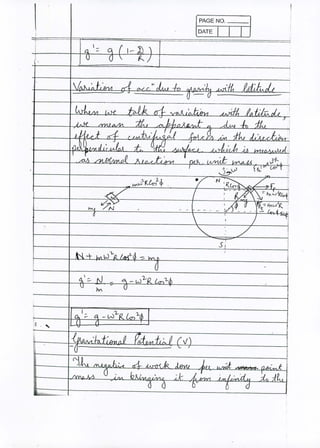 PAGE NO.
DATE
g' = g (1 - D/R)
Variation of accⁿ due to gravity with latitude
When we talk of variation with latitude,
we mean the apparent g due to the
effect of centrifugal forces in the direction
perpendicular to the surface which is measured
as normal reaction per unit mass.
mω²Rcos²φ
N
mg
N
Rcosφ
R
φ
mg
S
N + mω²Rcos²φ = mg
g' = N/m = g - ω²Rcos²φ
g' = g - ω²Rcos²φ
Gravitational Potential (V)
The negative of work done per unit point
mass in bringing it from infinity to the